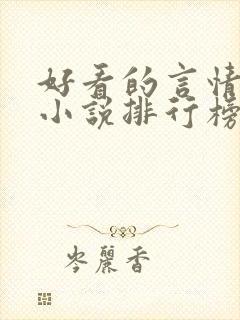 好看的言情
小说排行榜
岑丽香